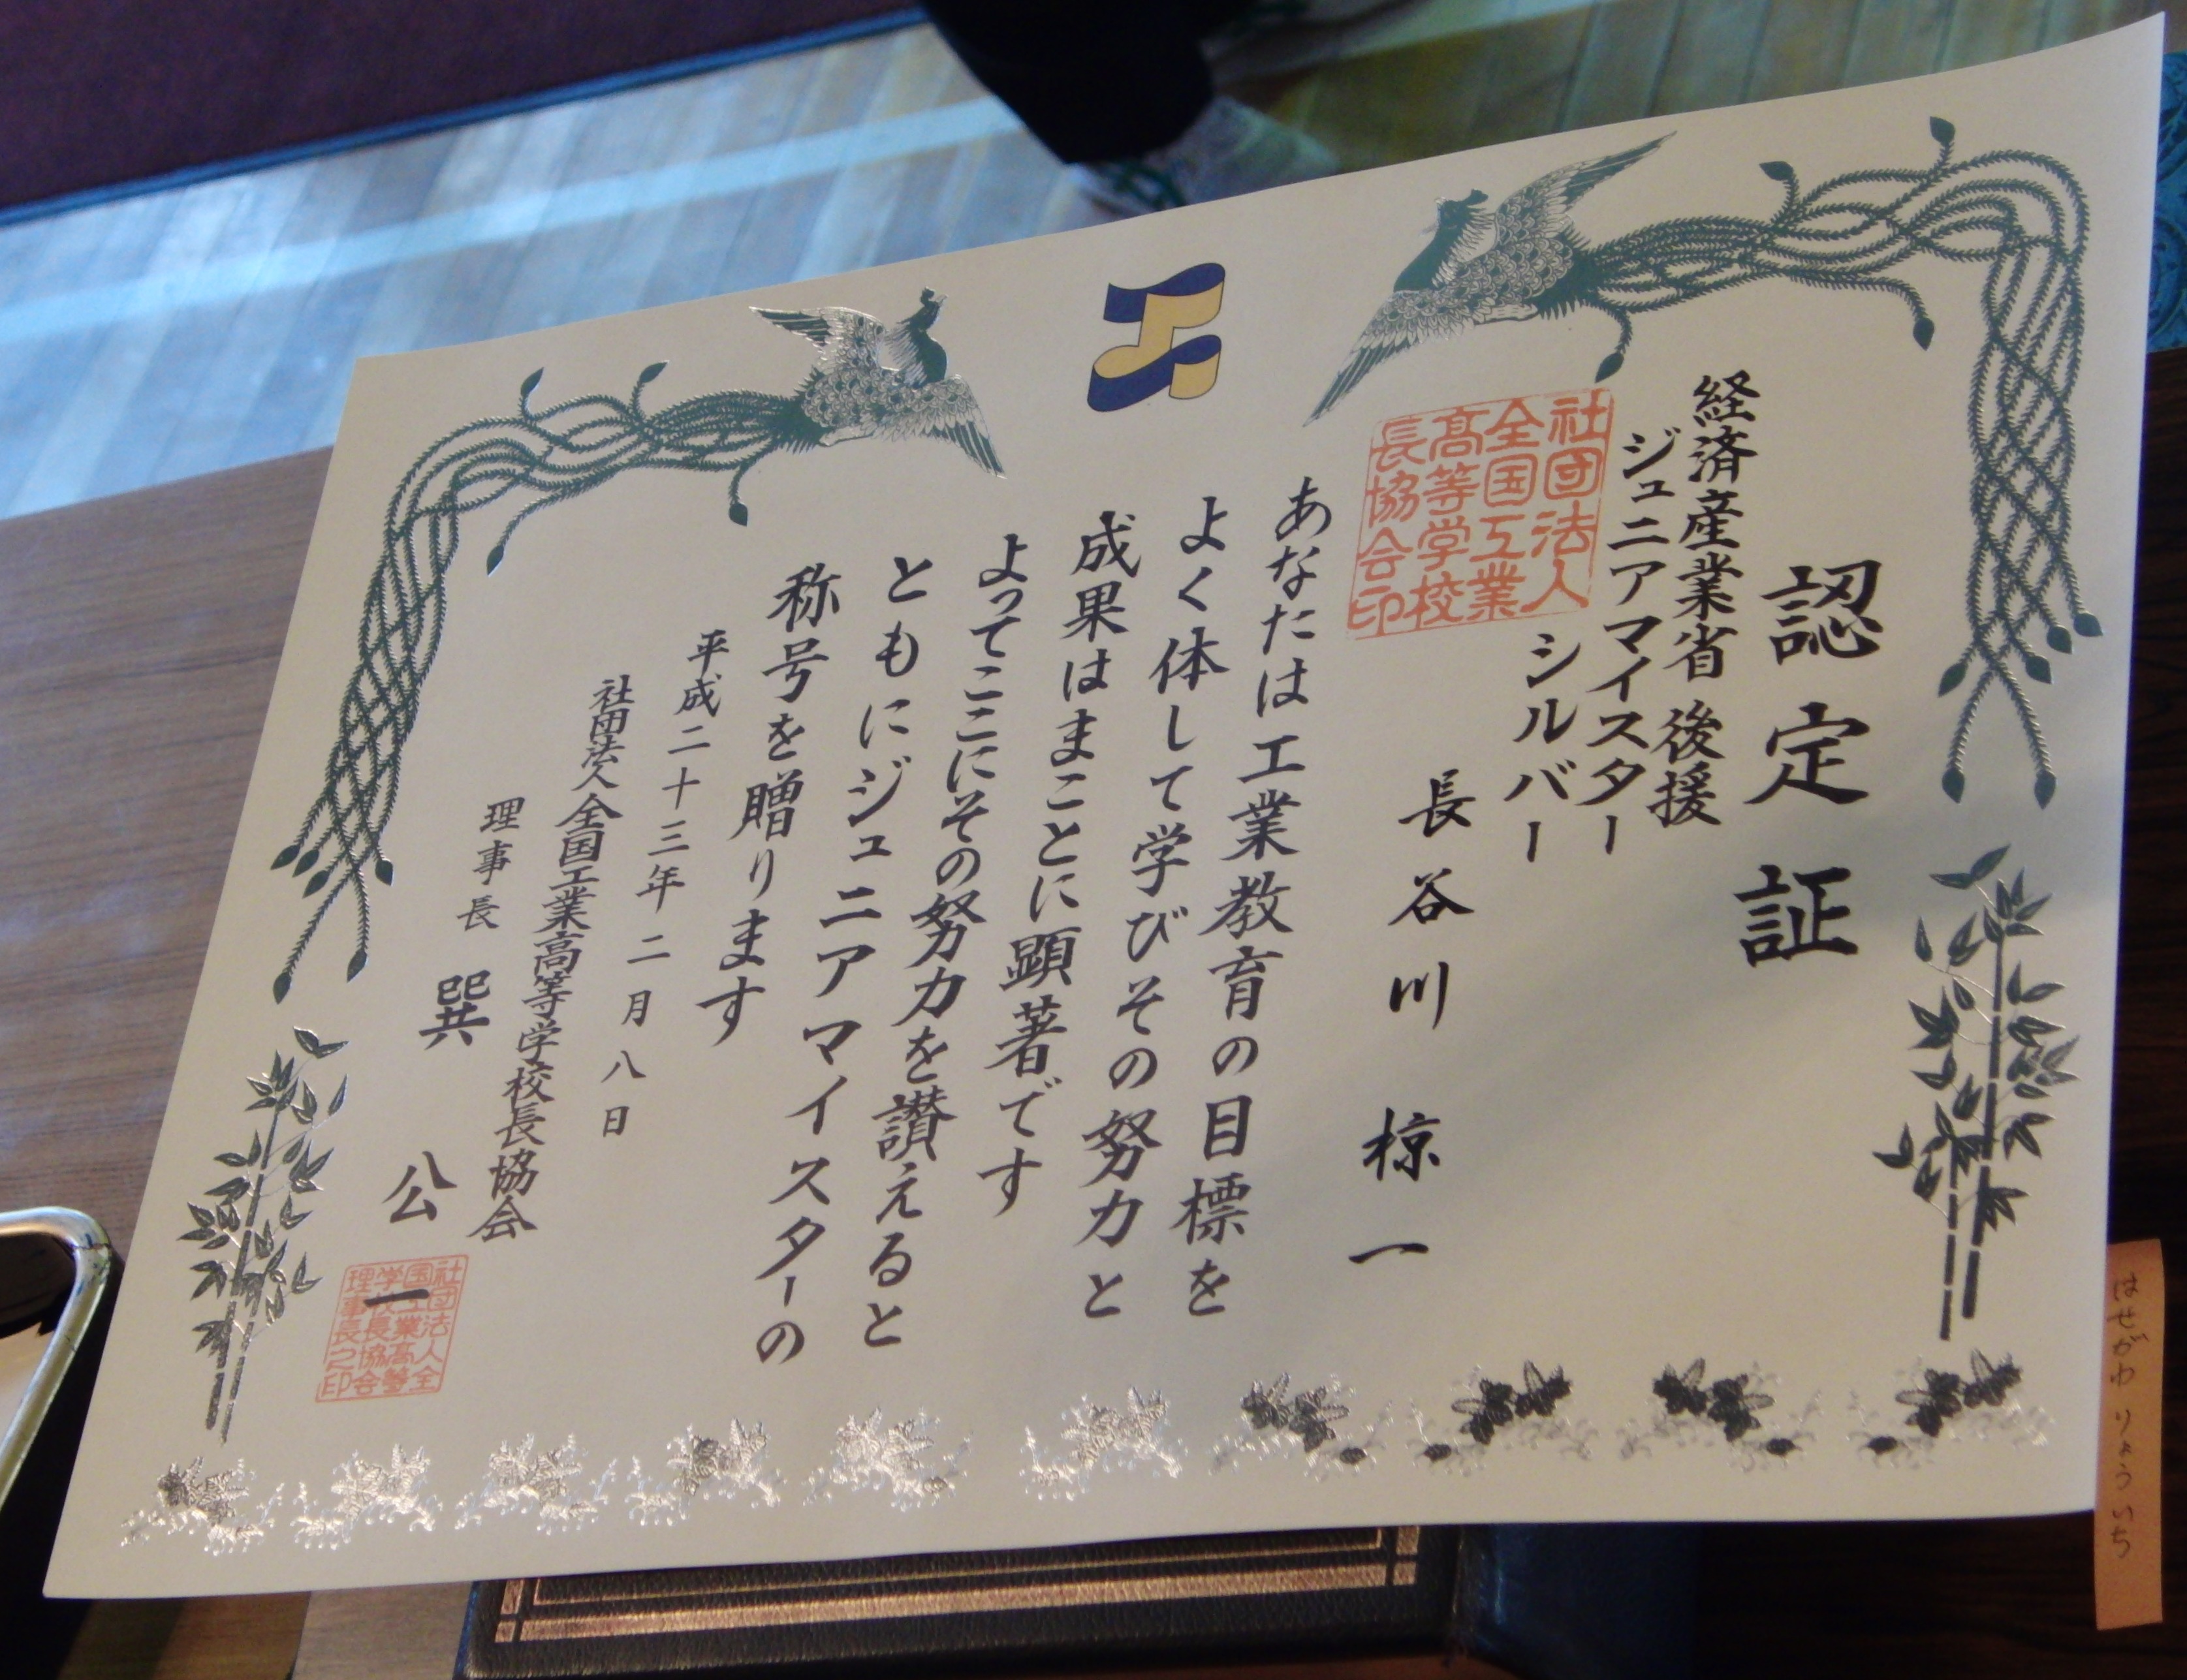 認定証
経済産業省 後援
ジュニアマイスター
シルバー
社団法人
全国工業
高等学校
長協会印
長谷川 椋一
あなたは工業教育の目標を
よく体して学びその努力と
成果はまことに顕著です
よってここにその努力を讃えると
ともにジュニアマイスターの
称号を贈ります
平成二十三年二月八日
社団法人全国工業高等学校長協会
理事長 巽 公一
社団法人全
国工業高等
学校長協会
理事長之印
はせがわ りょういち